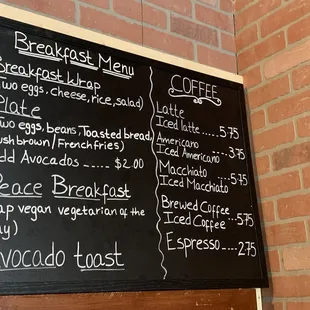 Breakfast Menu
Breakfast Wrap
two eggs, cheese, rice, salad)
Plate
two eggs, beans, Toasted bread,
hushbrown / French fries)
dd Avocados ----- $2.00
Peace Breakfast
ap vegan vegetarian of the
ay)
Avocado toast
COFFEE
Latte
Iced latte ..... 5.75
Americano
Iced Americano ... 3.75
Macchiato
Iced Macchiato ... 5.75
Brewed Coffee
Iced Coffee ... 5.75
Espresso ---- 2.75